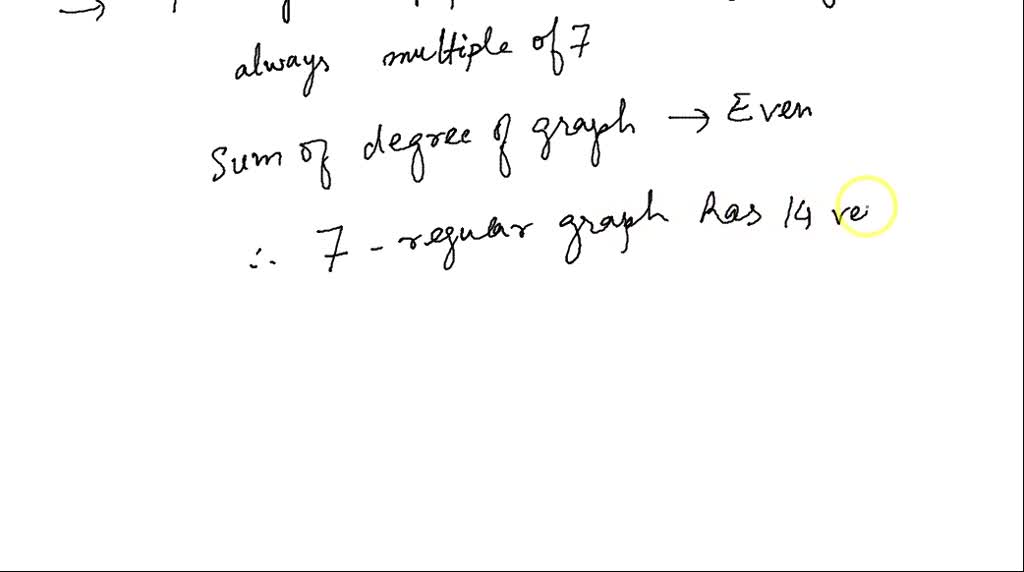 →
always multiple of 7
Sum of degree of graph → Even
∴ 7 - regular graph has 14 ve